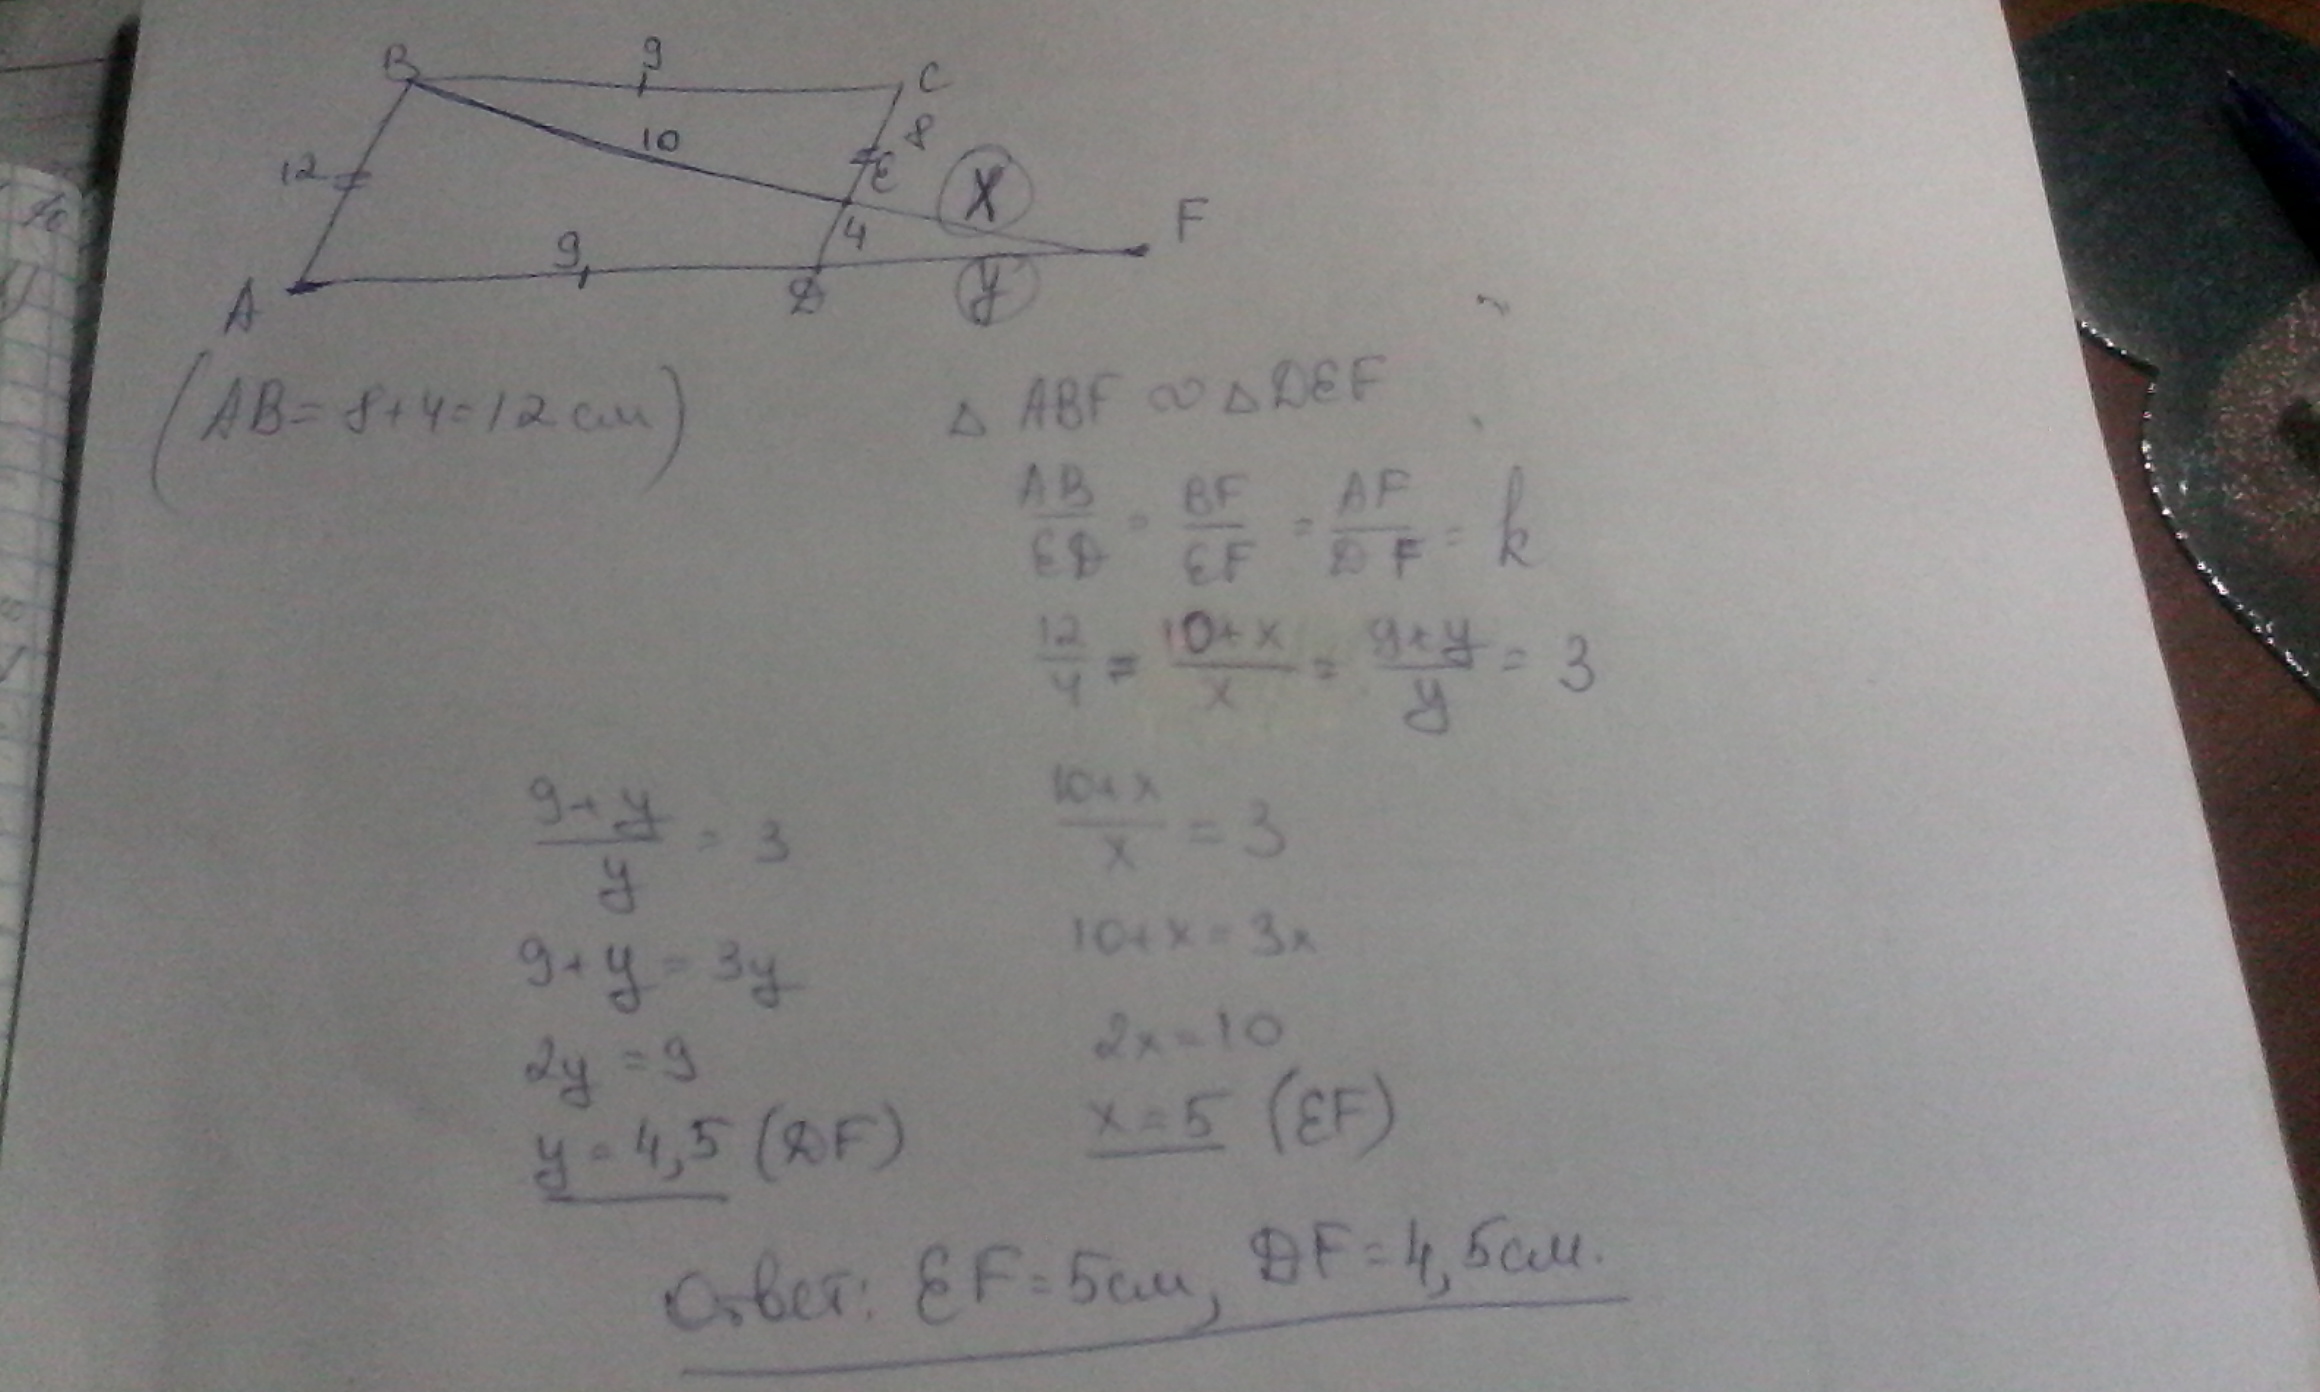 B 9 C
12 10 8
E X F
4
9
A D y
(AB = 8+4 = 12 см)
△ ABF ∾ △ DEF
AB/ED = BF/EF = AF/DF = k
12/4 = 10+x/x = 9+y/y = 3
9+y/y = 3
10+x/x = 3
9+y = 3y
10+x = 3x
2y = 9
2x = 10
y = 4,5 (DF)
x = 5 (EF)
Ответ: EF = 5см, DF = 4,5см.